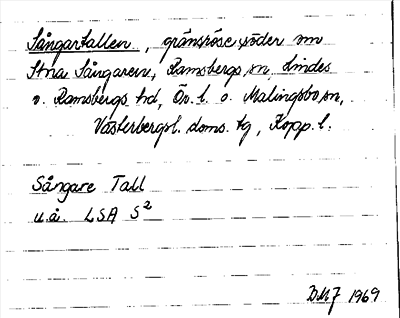 Sångartallen, gränsröse söder om
Stora Sångaren, Ramsbergs sn, Lindes
o. Ramsbergs hd, Ör. l. o. Malingsbo sn,
Västerbergsl. doms. tg, Kopp. l.
Sångare Tall
u.å. LSA S²
DMJ 1969